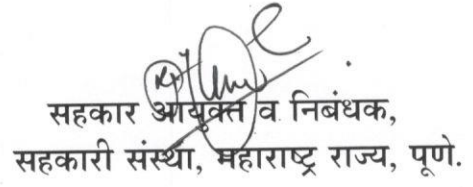 सहकार आयुक्त व निबंधक,
सहकारी संस्था, महाराष्ट्र राज्य, पूणे.